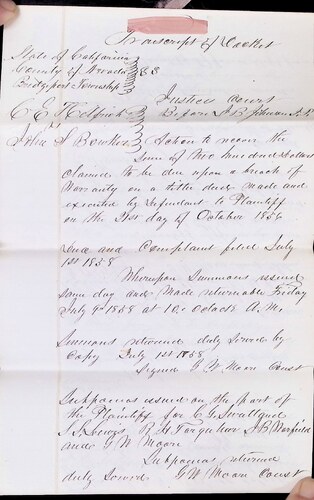 Transcript of Docket
State of California
County of Nevada } SS
Bridgeport Township
Justices Court
C E Helfrich Before J B Johnson J. P.
vs
John S Bowker Action to recover the
Sum of two hundred dollars
claimed to be due upon a breach of
Warranty on a title deed made and
executed by Defendant to Plaintiff
on the 21st day of October 1856
Sued and Complaint filed July
1st 1858
Whereupon Summons issued
same day and Made returnable Friday
July 9th 1858 at 10. Oclock A. M.
Summons returned duly Served by
Copy July 1st 1858.
Signed G W Moor Const
Subpoenas issued on the part of
the Plaintiff for C G Swallow
S S Lewis R H Farquhar J B Warfield
and G W Moor
Subpoenas returned
duly served G W Moor Const